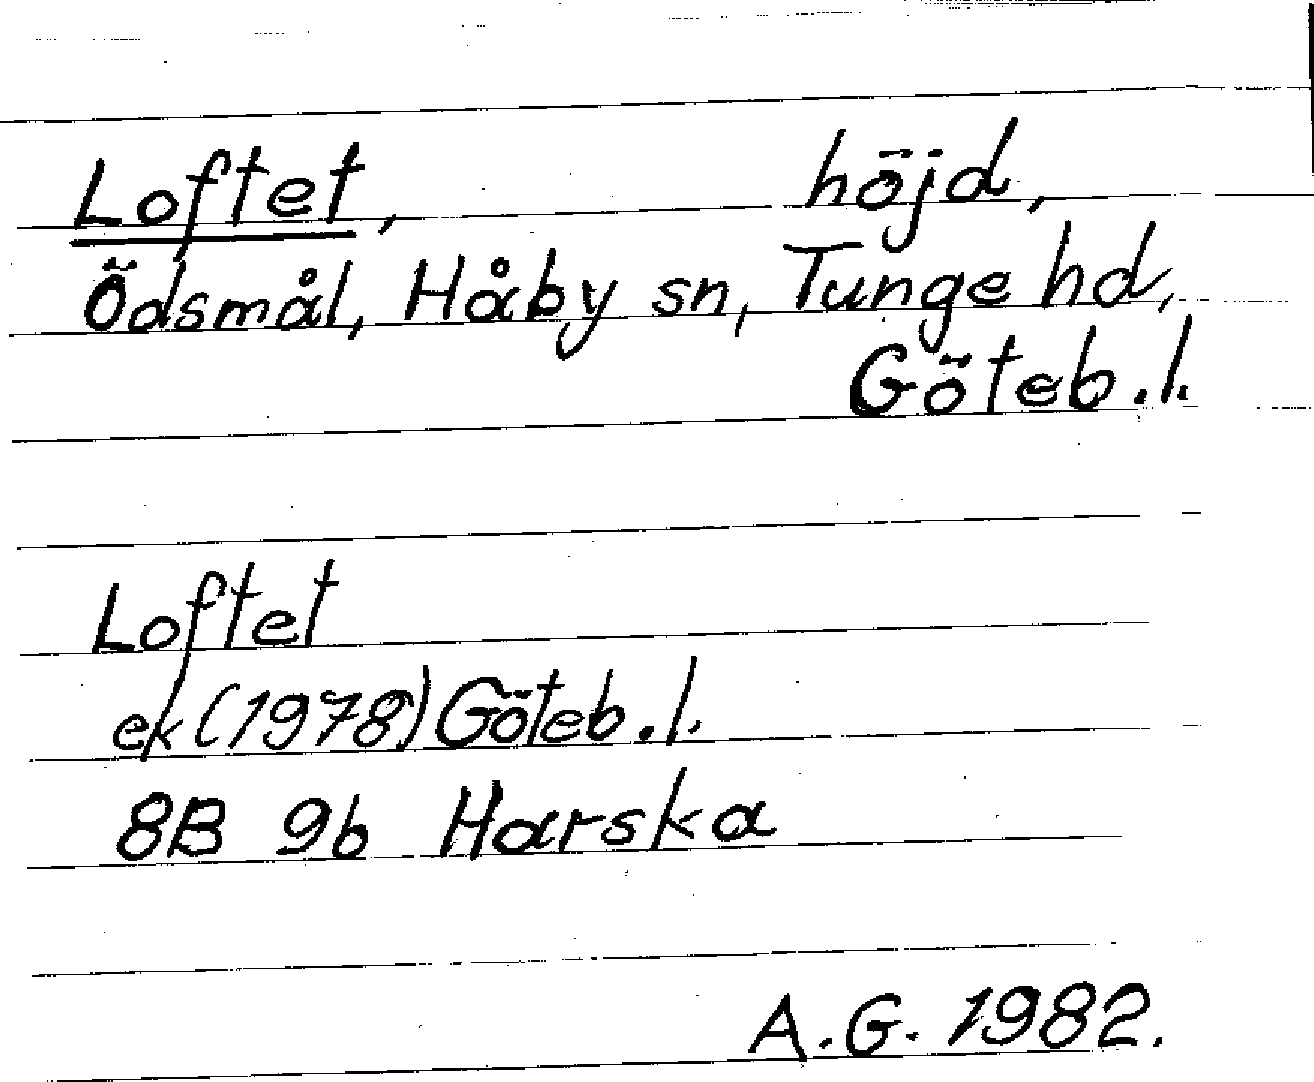 Loftet, höjd,
Ödsmål, Håby sn, Tunge hd,
Göteb.l.
Loftet
ek (1978) Göteb.l.
8B 9b Harska
A.G. 1982.